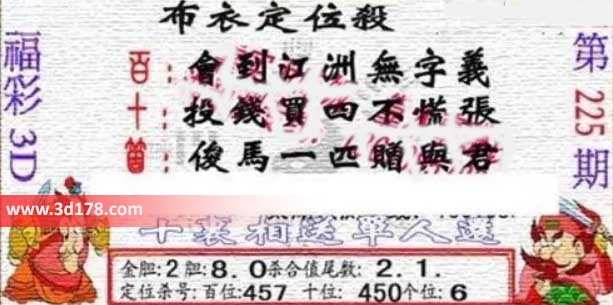 布衣定位殺
福彩3D
第225期
百：會到江洲無字義
十：投錢買四不慌張
個：俊馬一匹贈與君
www.3d178.com
金胆:2胆:8.0杀合值尾数:2.1.
定位杀号:百位:457 十位:450个位:6